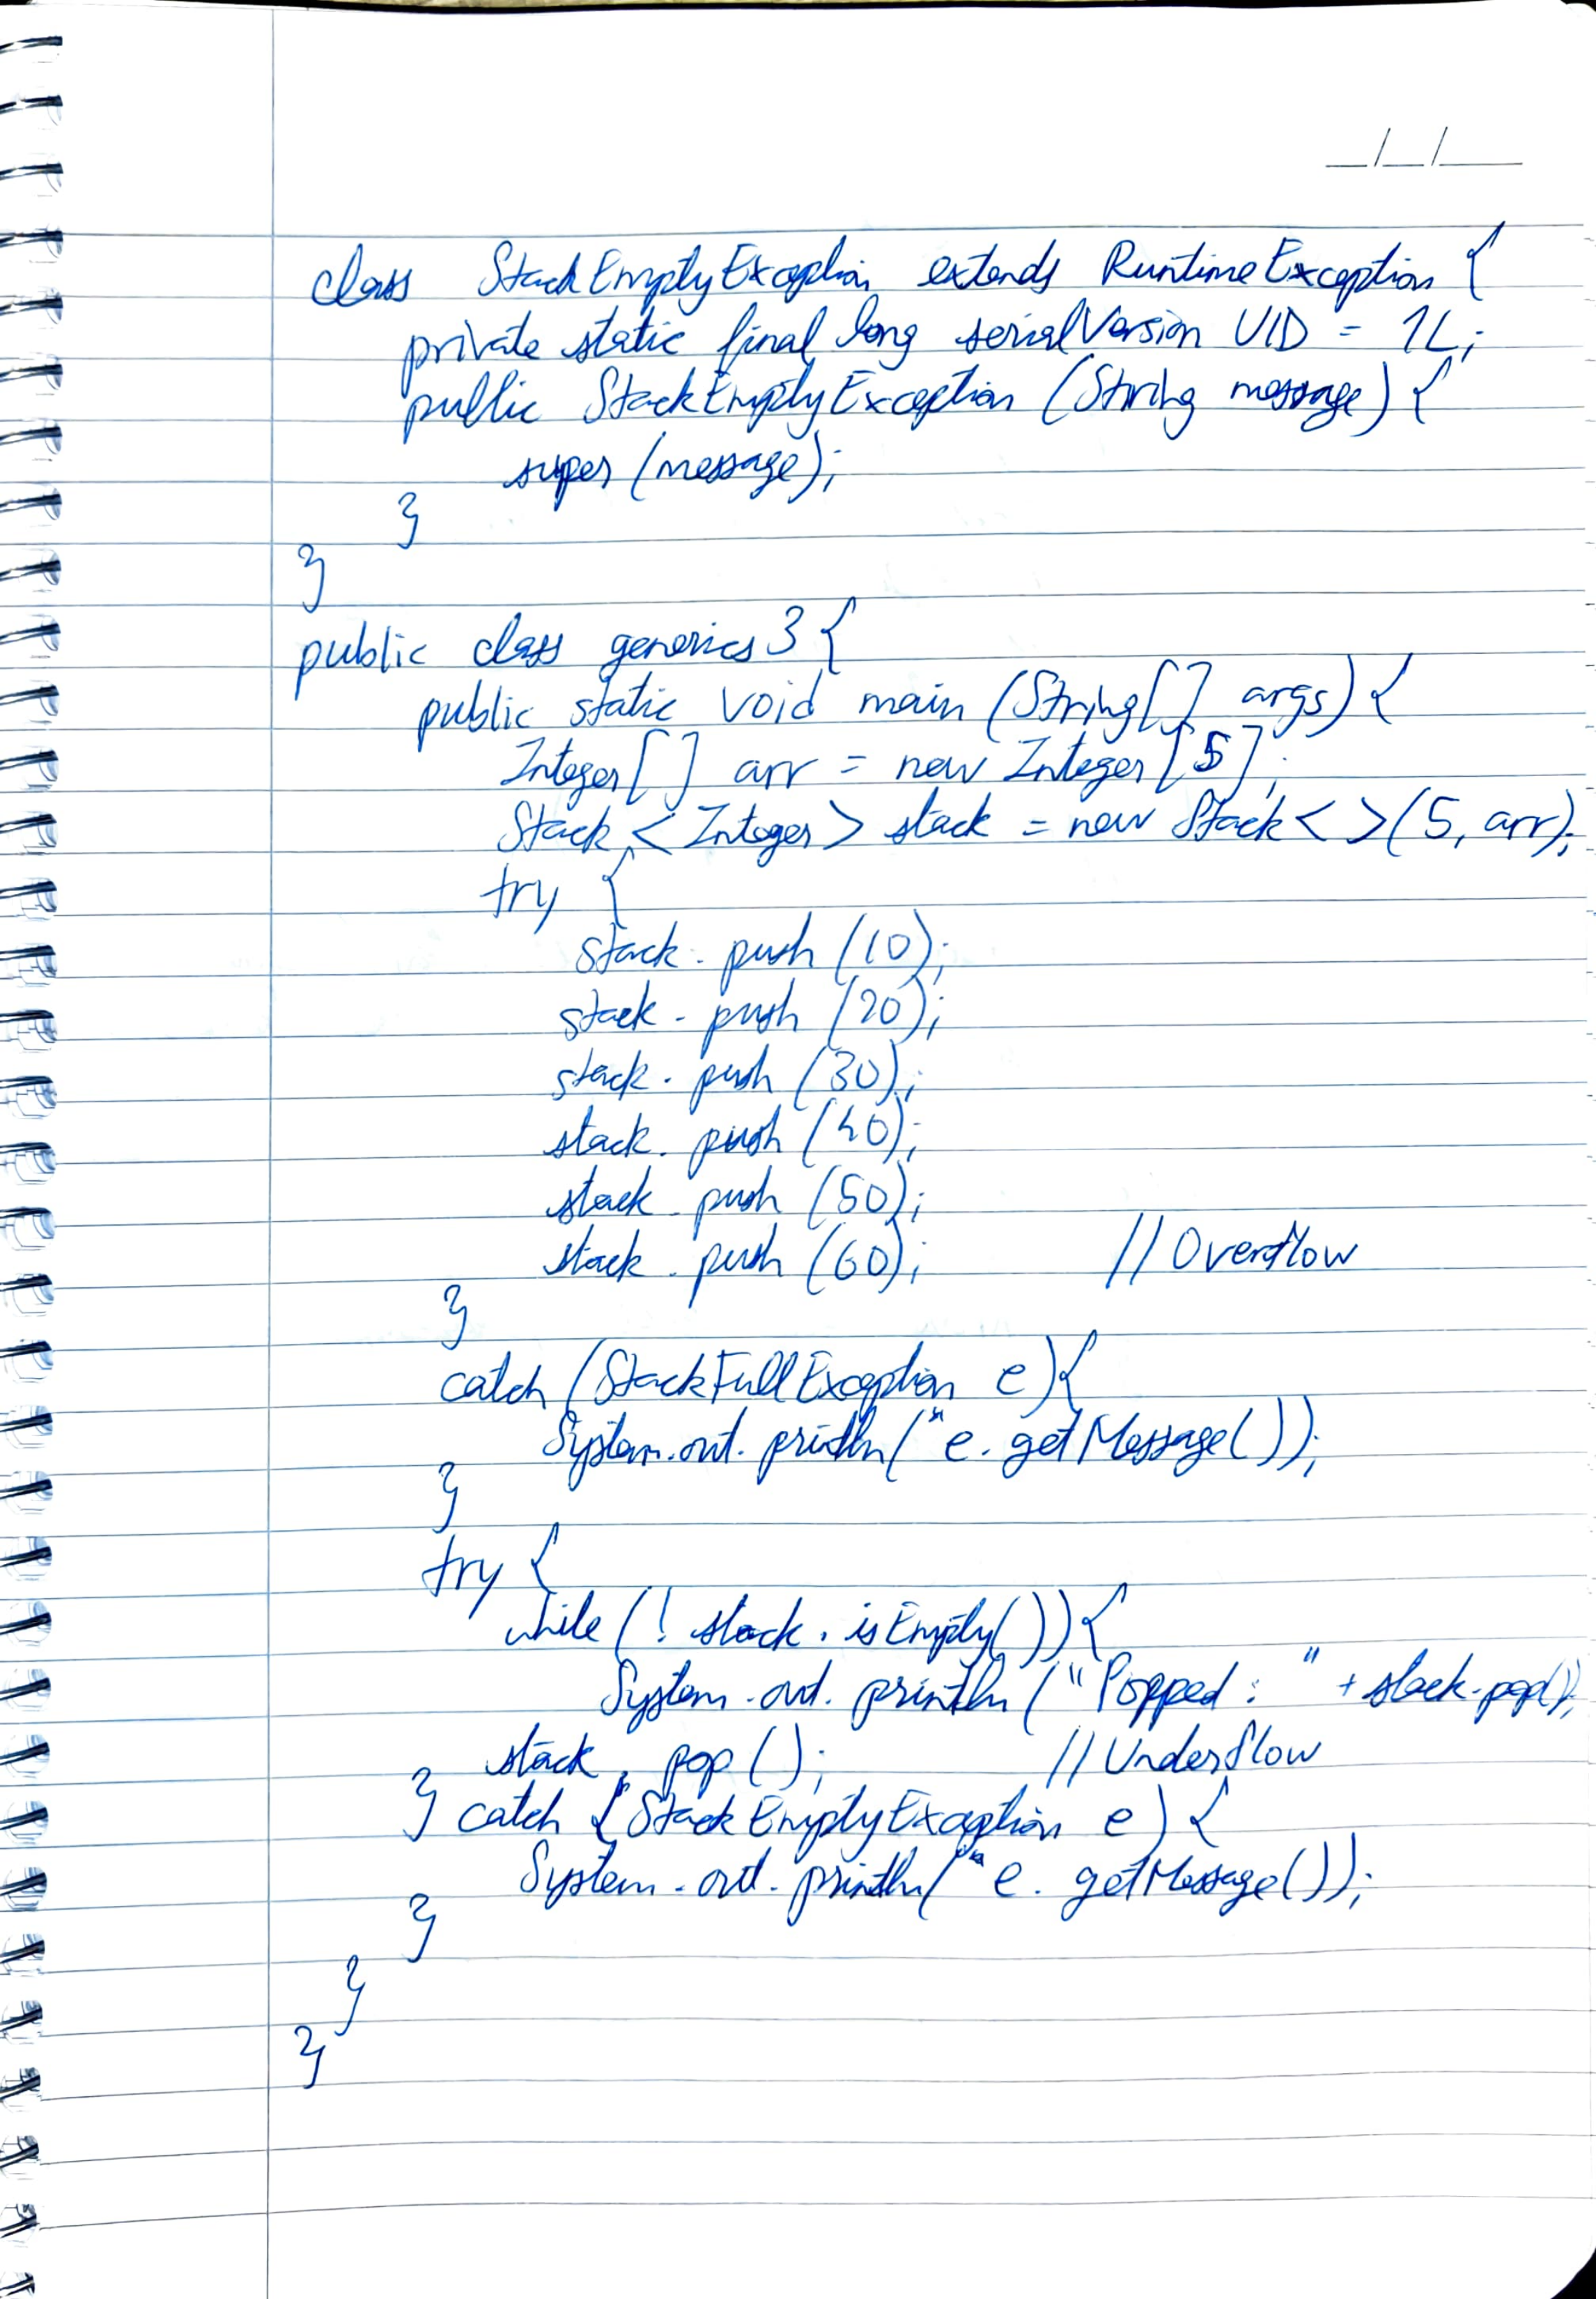 _/_/__
class StackEmptyException extends RuntimeException {
private static final long serialVersion UID = 1L;
public StackEmptyException (String message) {
super (message);
}
}
public class generics3 {
public static void main (String[] args) {
Integer[] arr = new Integer[5];
Stack <Integer> stack = new Stack< >(5, arr);
try {
stack. push (10);
stack. push (20);
stack. push (30);
stack. push (40);
stack. push (50);
stack. push (60); //Overflow
}
catch (StackFullException e){
System.out. println(" e. getMessage());
}
try {
while (! stack. isEmpty()){
System.out. println ("Popped : " + stack.pop());
stack. pop (); //Underflow
} catch (StackEmptyException e) {
System.out. println(" e. getMessage());
}
}
}